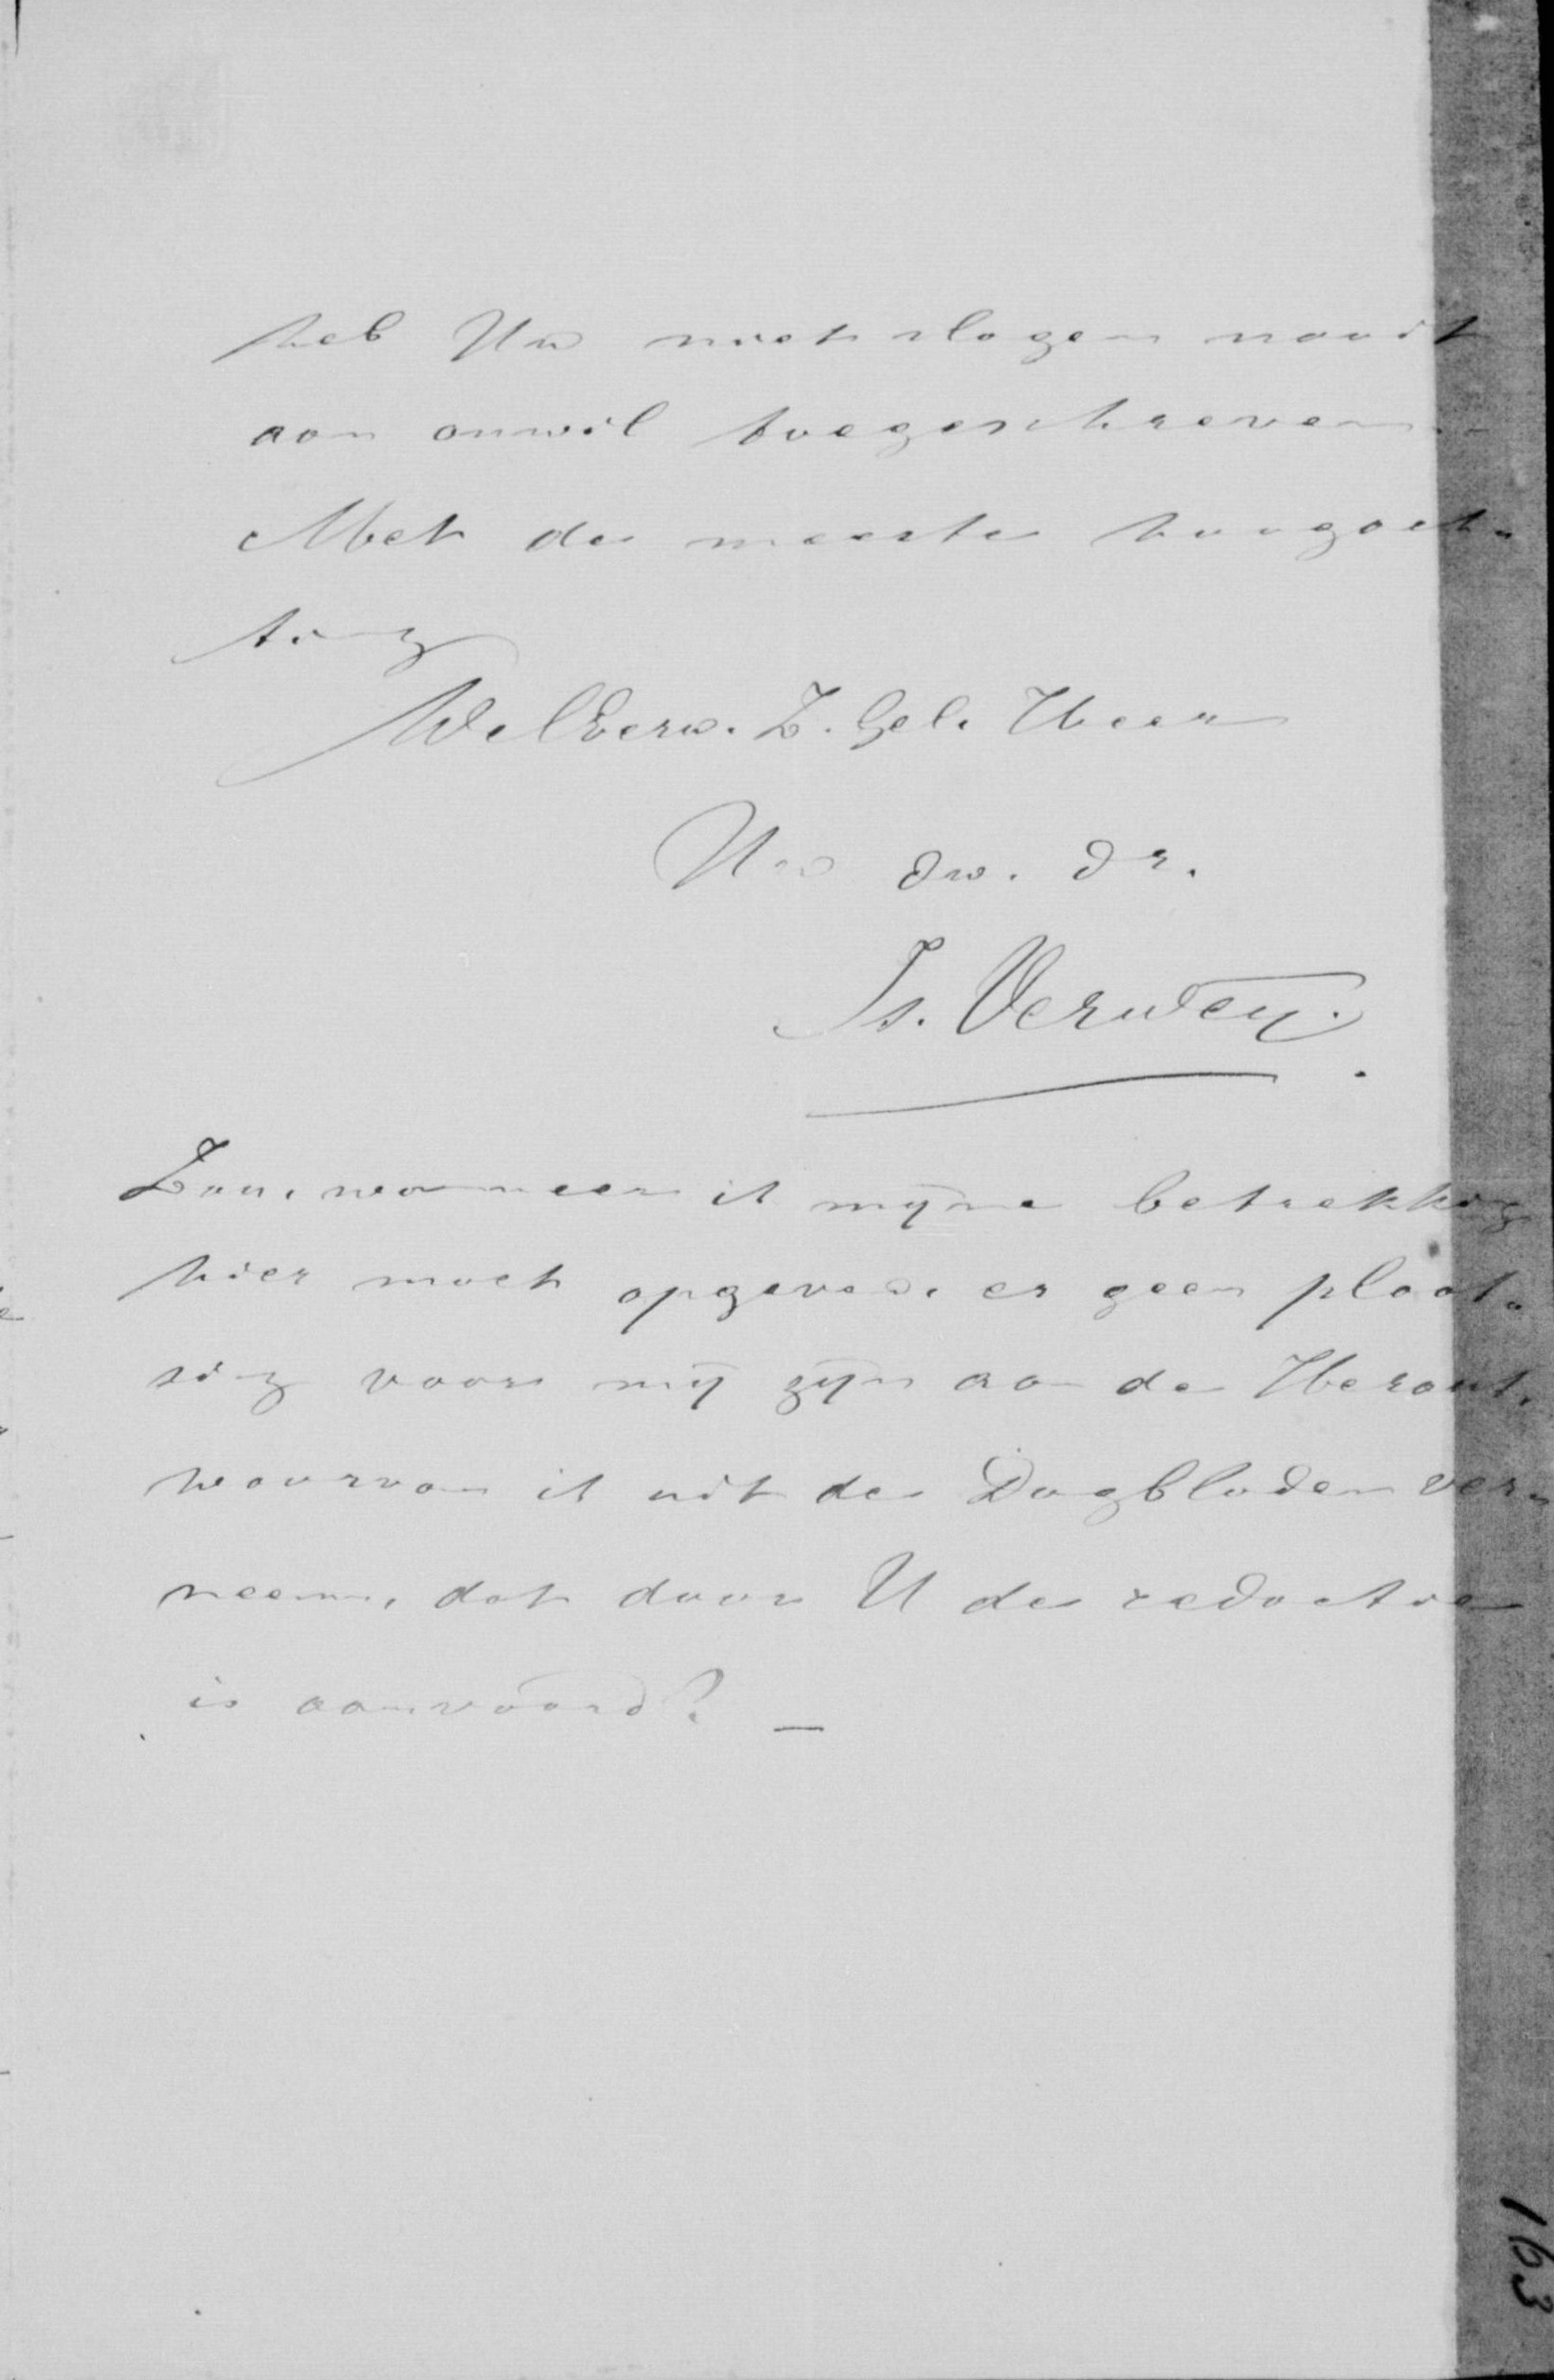 heb Uw niet slagen nooit
aan onwil toegeschreven. -
Met de meeste hoogach-
ting
WelEerw. Z. Gel. Heer
Uw dw. dr.
Is. Verwey.
Zou, wanneer ik mijne betrekking
hier moet opgeven, er geen plaat-
sing voor mij zijn aan de Heraut,
waarvan ik uit de Dagbladen ver-
neem, dat door U de redactie
is aanvaard? _
163